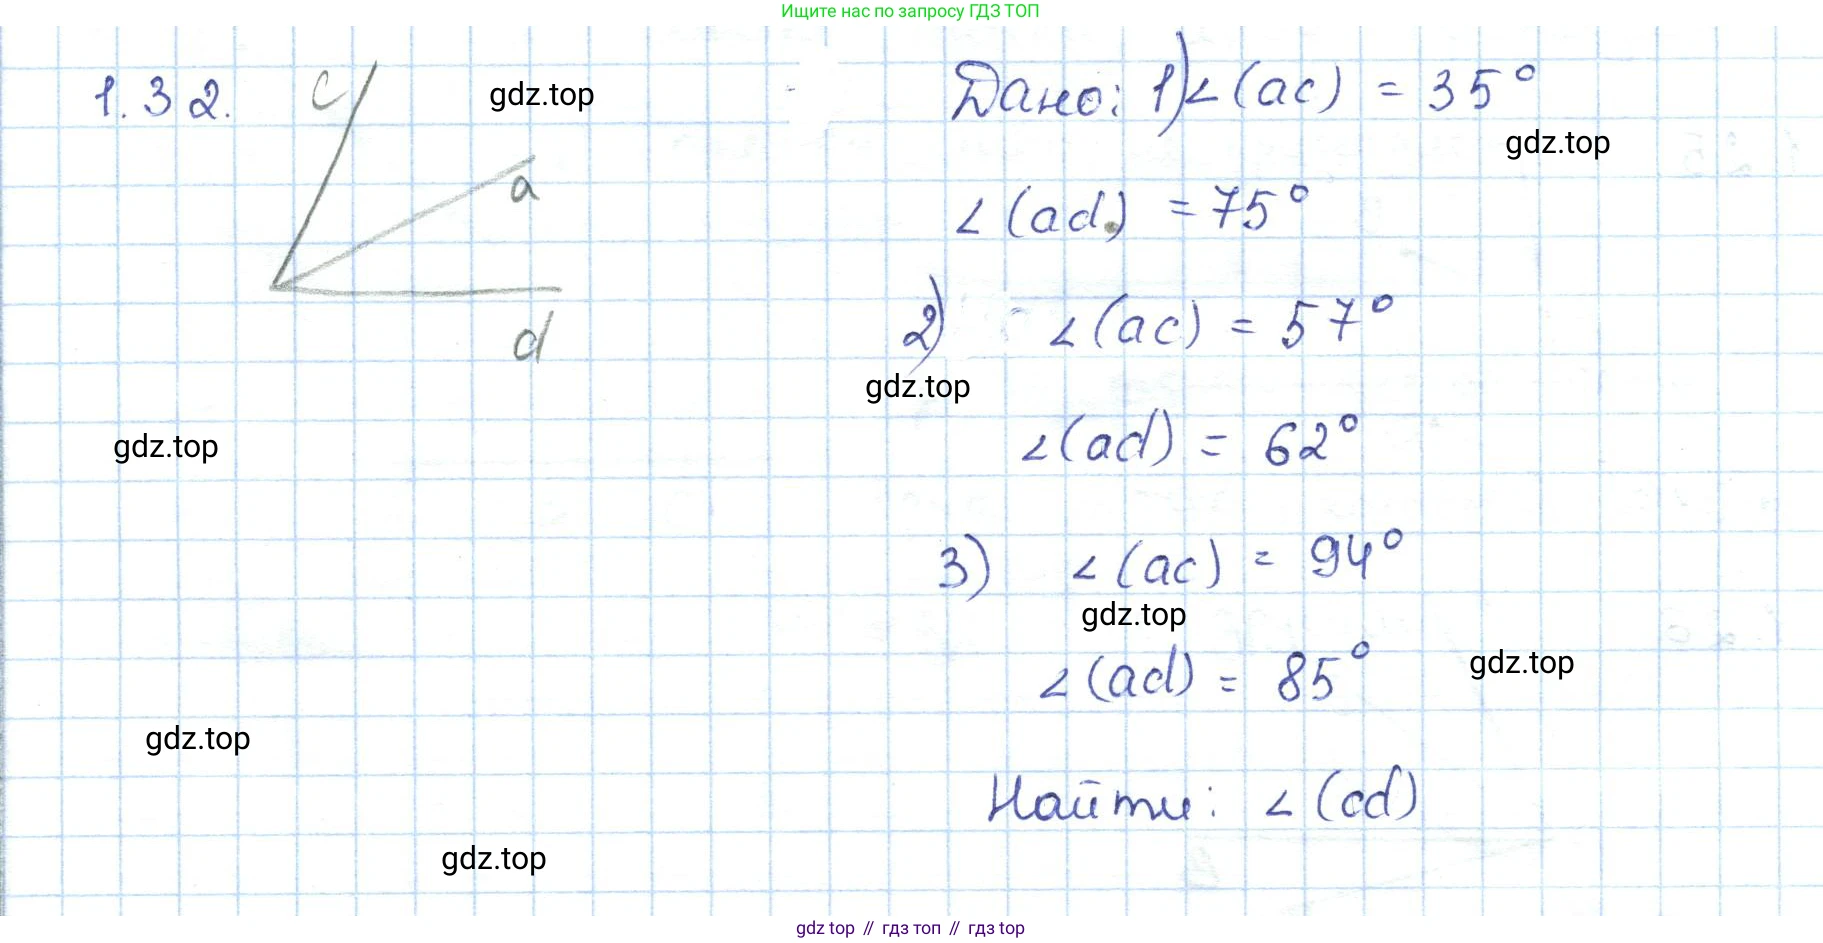 Ищите нас по запросу ГДЗ ТОП
1.32.
c
a
d
Дано: 1) ∠(ac) = 35°
∠(ad) = 75°
2) ∠(ac) = 57°
∠(ad) = 62°
3) ∠(ac) = 94°
∠(ad) = 85°
Найти: ∠(cd)
gdz.top
gdz.top
gdz.top
gdz.top
gdz.top
gdz.top
gdz.top
gdz.top
gdz top // гдз топ // гдз top